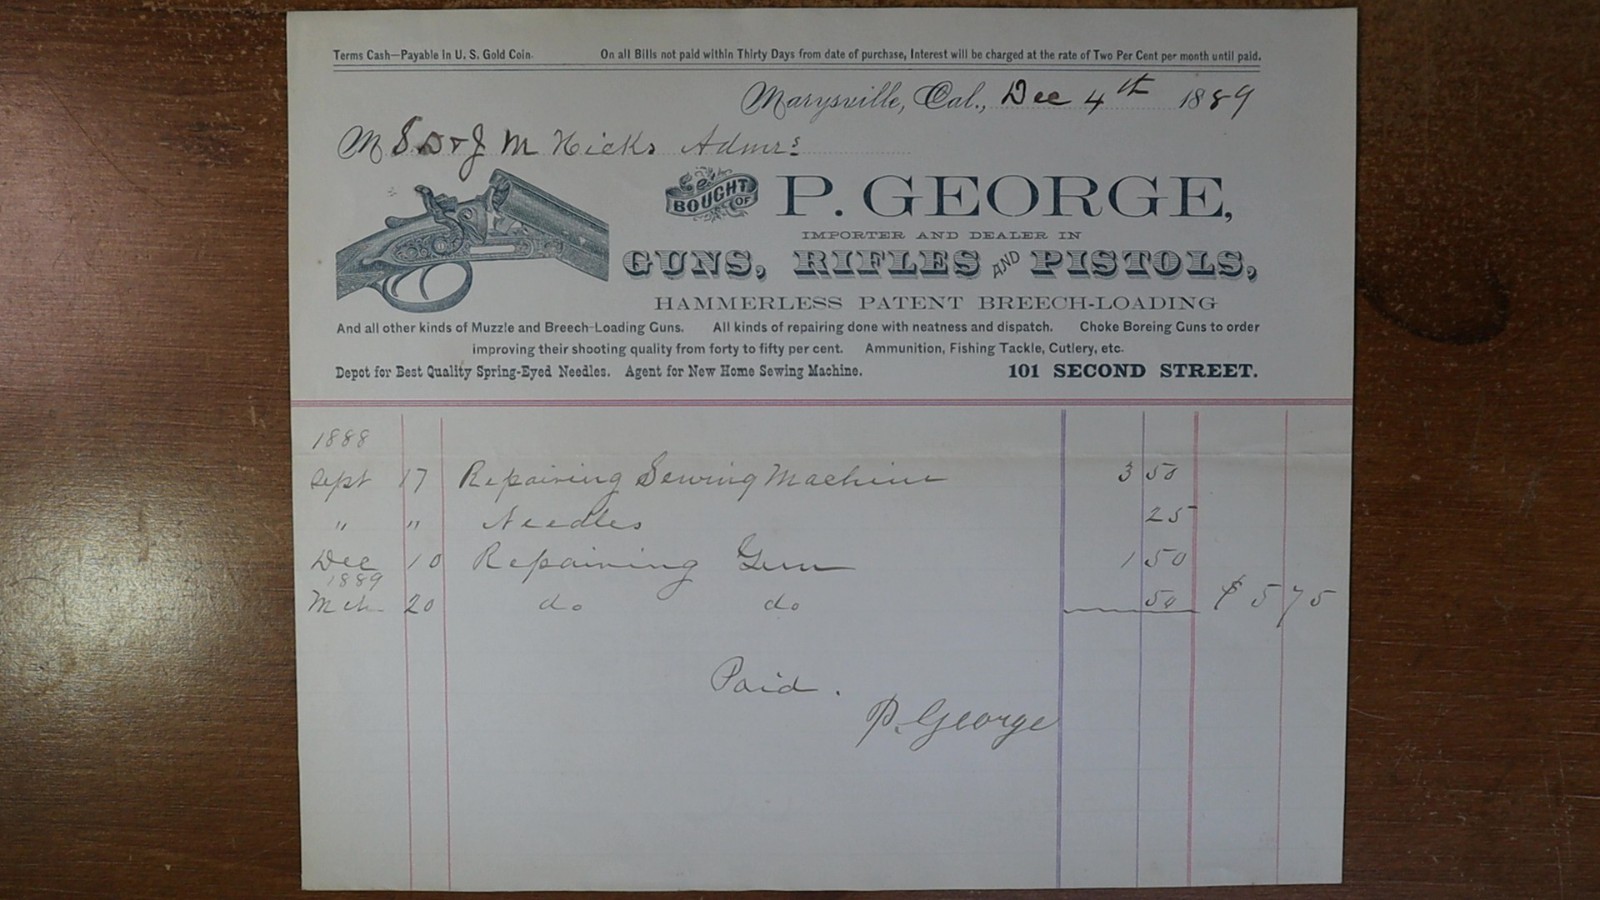 Terms Cash—Payable in U. S. Gold Coin. On all Bills not paid within Thirty Days from date of purchase, Interest will be charged at the rate of Two Per Cent per month until paid.
Marysville, Cal., Dec 4th 1889
M S. D & J M Hicks Admrs
BOUGHT OF P. GEORGE,
IMPORTER AND DEALER IN
GUNS, RIFLES AND PISTOLS,
HAMMERLESS PATENT BREECH-LOADING
And all other kinds of Muzzle and Breech-Loading Guns. All kinds of repairing done with neatness and dispatch. Choke Boreing Guns to order
improving their shooting quality from forty to fifty per cent. Ammunition, Fishing Tackle, Cutlery, etc.
Depot for Best Quality Spring-Eyed Needles. Agent for New Home Sewing Machine. 101 SECOND STREET.
1888
Sept 17 Repairing Sewing Machine 3 50
" " Needles 25
Dec 10 Repairing Gun 1 50
1889
Mch 20 do do 50 $5 75
Paid.
P. George